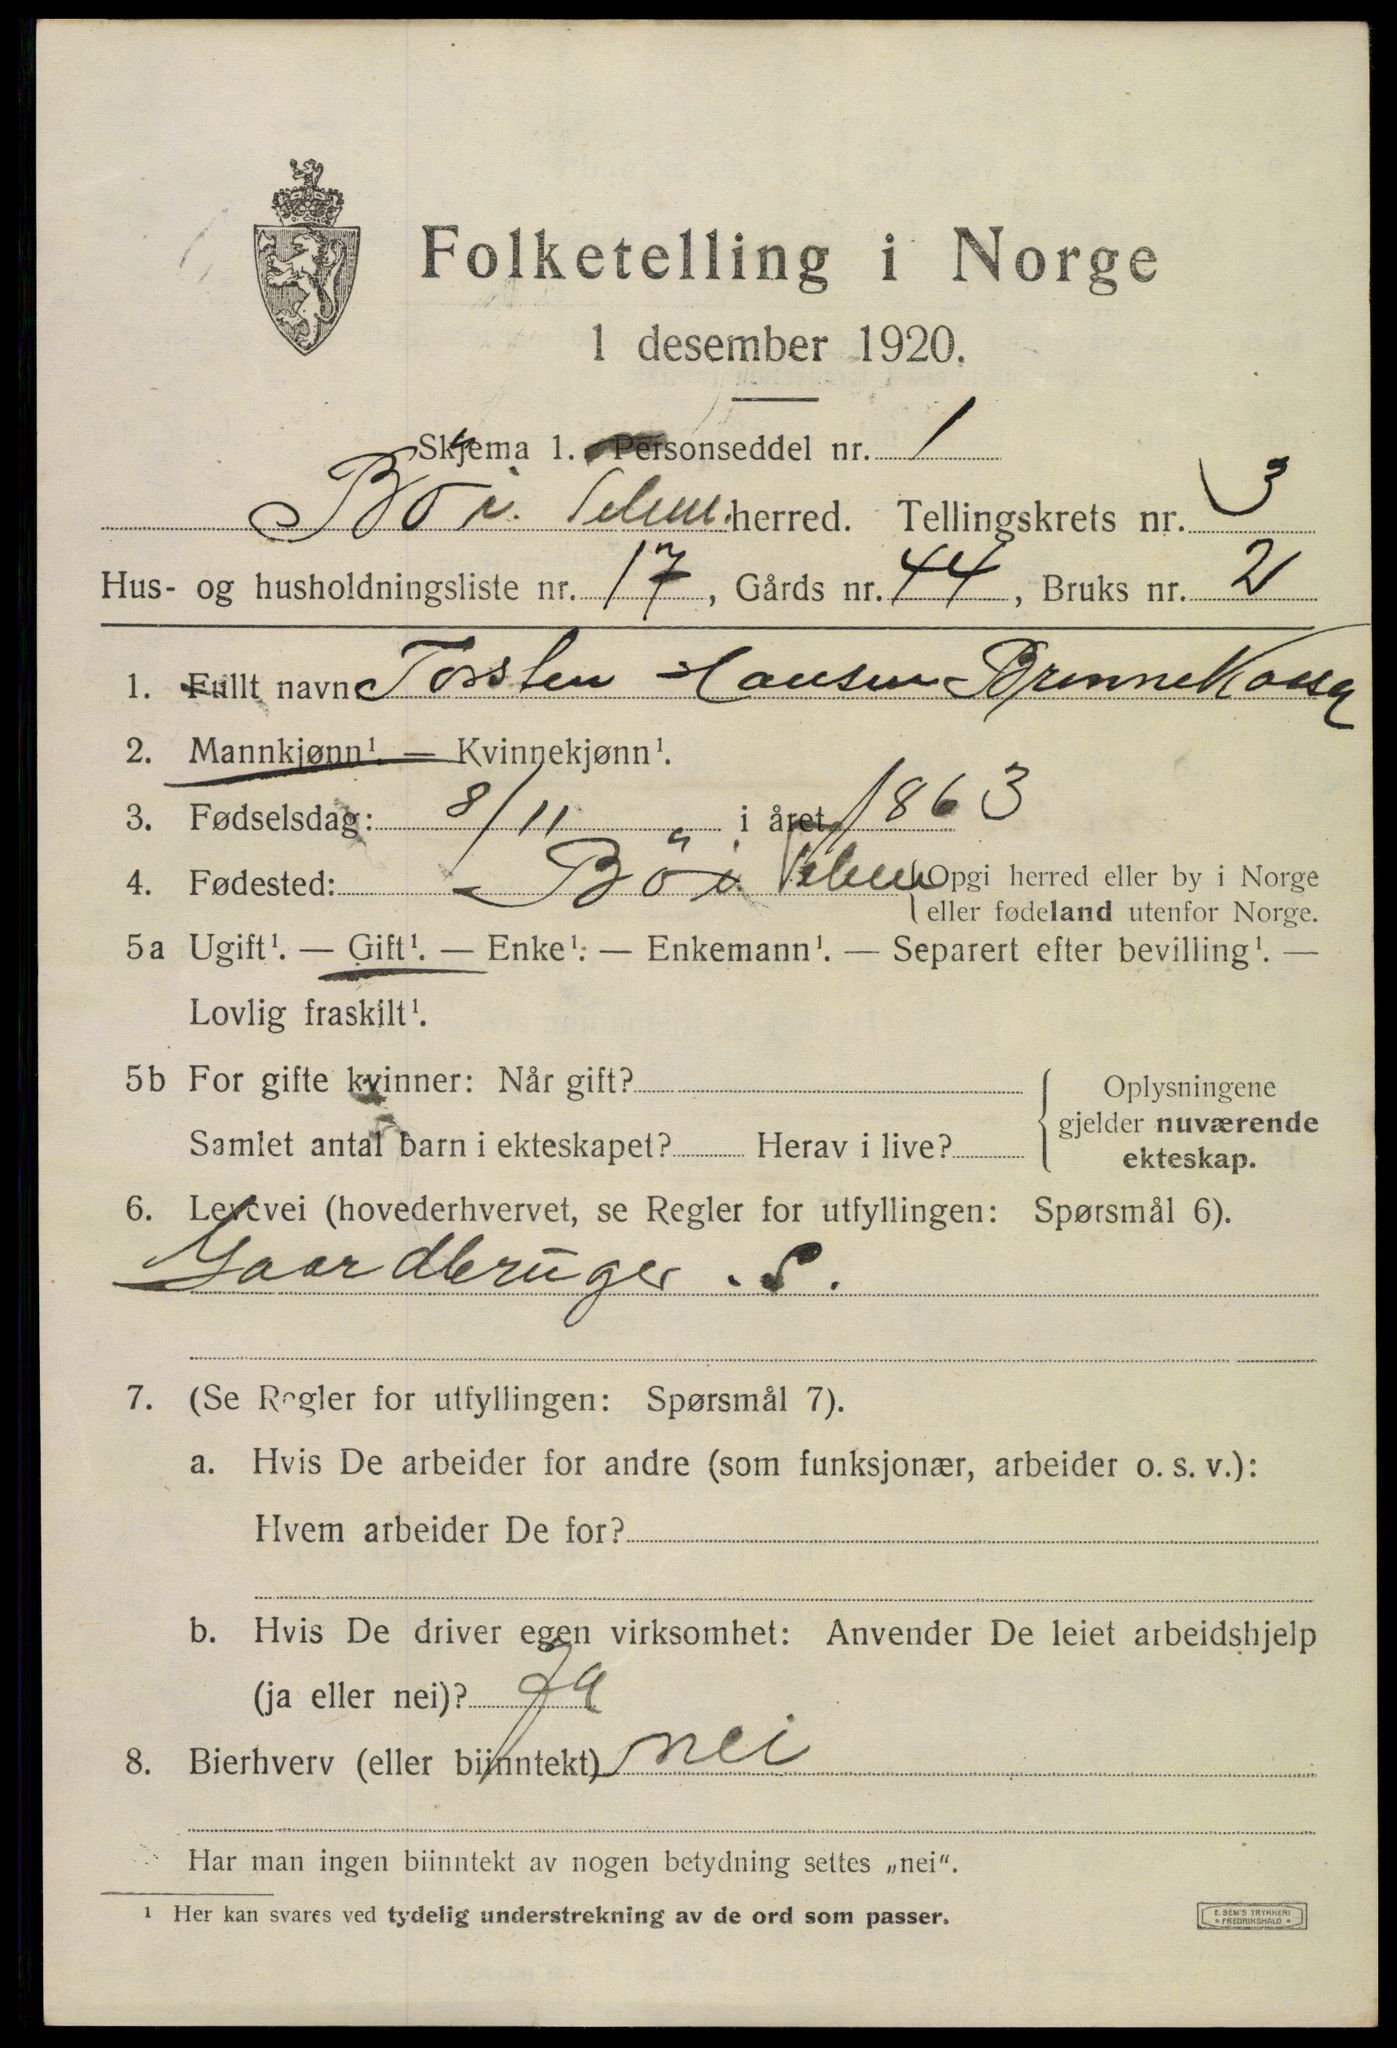 Folketelling i Norge
1 desember 1920.
Skjema 1. Personseddel nr. 1
Bö i Telem. herred. Tellingskrets nr. 3
Hus- og husholdningsliste nr. 17, Gårds nr. 44, Bruks nr. 2
1. Fullt navn Torsten Hansen
2. Mannkjønn¹. — Kvinnekjønn¹.
3. Fødselsdag: 8/11 i året 1863
4. Fødested: Bö i Telem (Opgi herred eller by i Norge
eller fødeland utenfor Norge.
5a Ugift¹. — Gift¹. — Enke¹. — Enkemann¹. — Separert efter bevilling¹. —
Lovlig fraskilt¹.
5b For gifte kvinner: Når gift?
Samlet antal barn i ekteskapet? Herav i live?
Oplysningene
gjelder nuværende
ekteskap.
6. Levevei (hovederhvervet, se Regler for utfyllingen: Spørsmål 6).
Gaardbruger . S.
7. (Se Regler for utfyllingen: Spørsmål 7).
a. Hvis De arbeider for andre (som funksjonær, arbeider o. s. v.):
Hvem arbeider De for?
b. Hvis De driver egen virksomhet: Anvender De leiet arbeidshjelp
(ja eller nei)? Ja
8. Bierhverv (eller biinntekt) nei
Har man ingen biinntekt av nogen betydning settes „nei“.
¹ Her kan svares ved tydelig understrekning av de ord som passer.
E. SEM'S TRYKKERI
FREDRIKSHALD